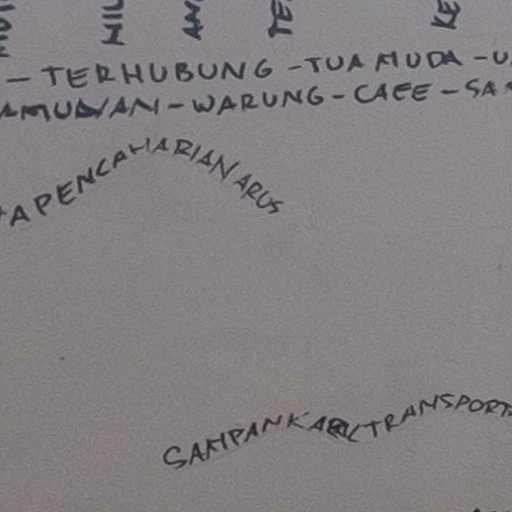 MIL
TE
KE
- TERHUBUNG - TUA MUDA - U
AMUWAN - WARUNG - CAFE - SA
APENCAHARIAN ARUS
SAMPAN KARU TRANSPORT